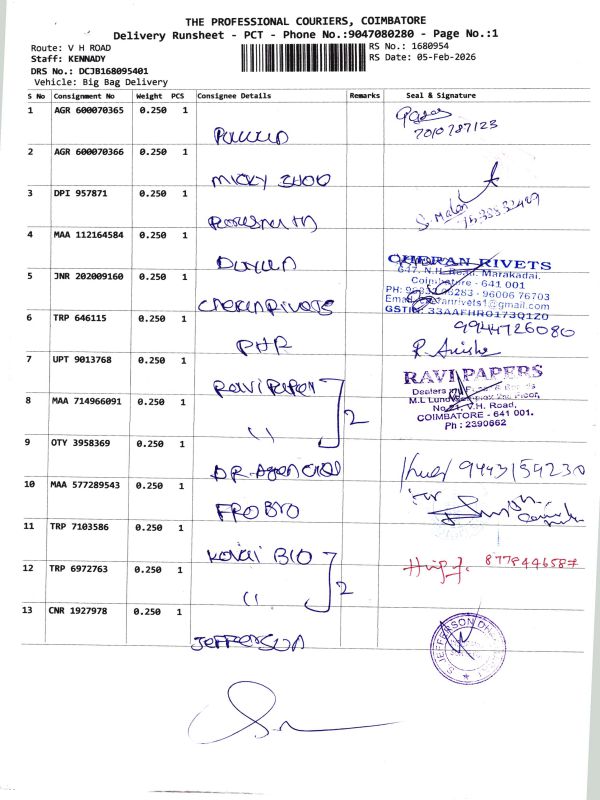 THE PROFESSIONAL COURIERS, COIMBATORE
Delivery Runsheet - PCT - Phone No.:9047080280 - Page No.:1
Route: V H ROAD
RS No.: 1680954
Staff: KENNADY
RS Date: 05-Feb-2026
DRS No.: DCJB168095401
Vehicle: Big Bag Delivery
S No Consignment No Weight PCS Consignee Details Remarks Seal & Signature
1 AGR 600070365 0.250 1
7010787123
2 AGR 600070366 0.250 1
MICKY
3 DPI 957871 0.250 1
4 MAA 112164584 0.250 1
CHERAN RIVETS
647, N.H. Road, Marakadai,
Coimbatore - 641 001
5 JNR 202009160 0.250 1
- 96006 76703
GSTIN: 33AAFHR0173Q1Z0
6 TRP 646115 0.250 1
9944726080
PHR
7 UPT 9013768 0.250 1
RAVI PAPERS
8 MAA 714966091 0.250 1
2
V.H. Road,
COIMBATORE - 641 001.
Ph : 2390662
9 OTY 3958369 0.250 1
9443159230
10 MAA 577289543 0.250 1
for
11 TRP 7103586 0.250 1
Kovai BIO
12 TRP 6972763 0.250 1
2
13 CNR 1927978 0.250 1
JEFFERSON